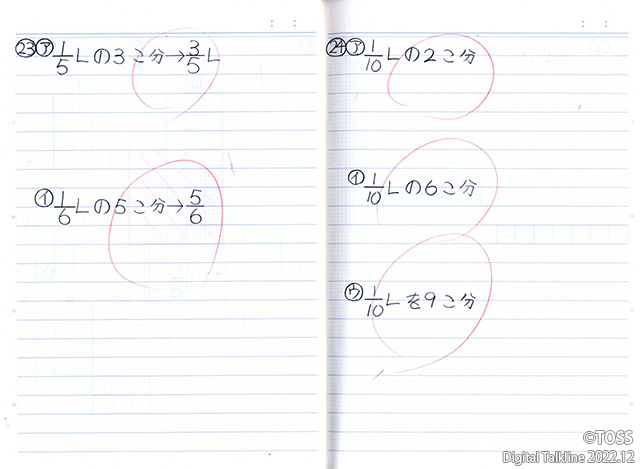 ㉓㋐1/5Lの3こ分→3/5L
㋑1/6Lの5こ分→5/6
㉔㋐1/10Lの2こ分
㋑1/10Lの6こ分
㋒1/10Lを9こ分
©TOSS
Digital Talkline 2022.12